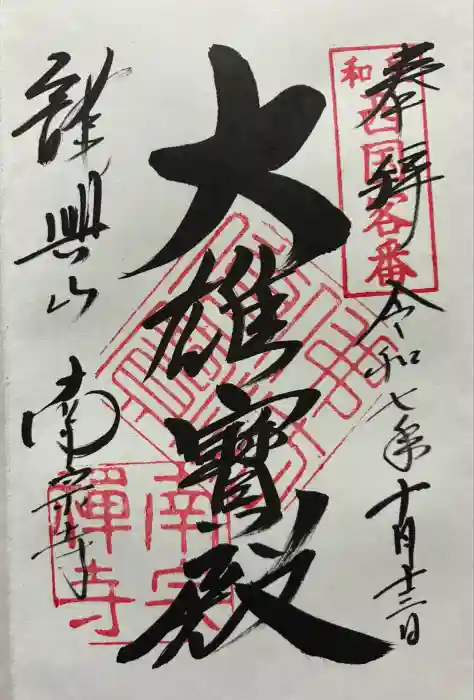 奉拝
令和七年十月十三日
大雄寳殿
龍興山
南宗寺
和
西国客番
南宗
禅寺